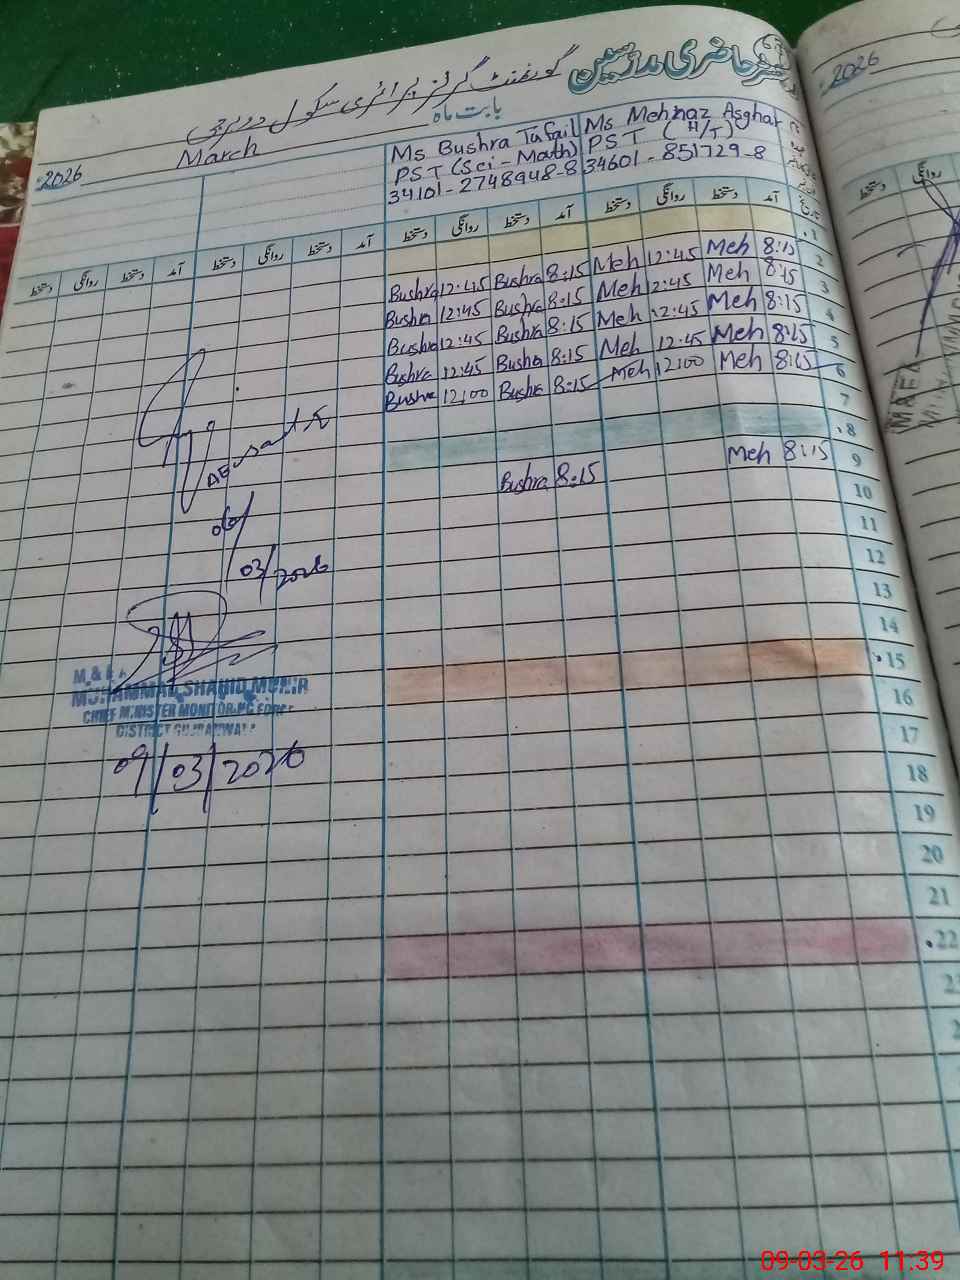 رجسٹر حاضری مدرسین
گورنمنٹ گرلز پرائمری سکول
بابت ماہ
March
2026
Ms Bushra Tufail
PST (Sci-Math)
34101-2748948-8
Ms Mehnaz Asghar
PST (H/T)
34601-851729-8
دستخط روانگی دستخط آمد دستخط روانگی دستخط آمد دستخط روانگی دستخط آمد دستخط روانگی دستخط آمد تاریخ
1
Bushra 12:45 Bushra 8:15 Meh 12:45 Meh 8:15 2
Bushra 12:45 Bushra 8:15 Meh 12:45 Meh 8:15 3
Bushra 12:45 Bushra 8:15 Meh 12:45 Meh 8:15 4
Bushra 12:45 Bushra 8:15 Meh 12:45 Meh 8:15 5
Bushra 12:00 Bushra 8:15 Meh 12:00 Meh 8:15 6
7
8
Bushra 8:15 Meh 8:15 9
10
11
12
13
14
15
16
17
18
19
20
21
22
03/2026
MUHAMMAD SHAHID MUNIR
CHIEF MINISTER MONITORING FORCE
DISTRICT GUJRANWALA
09/03/2026
2026
دستخط روانگی
09-03-26 11:39